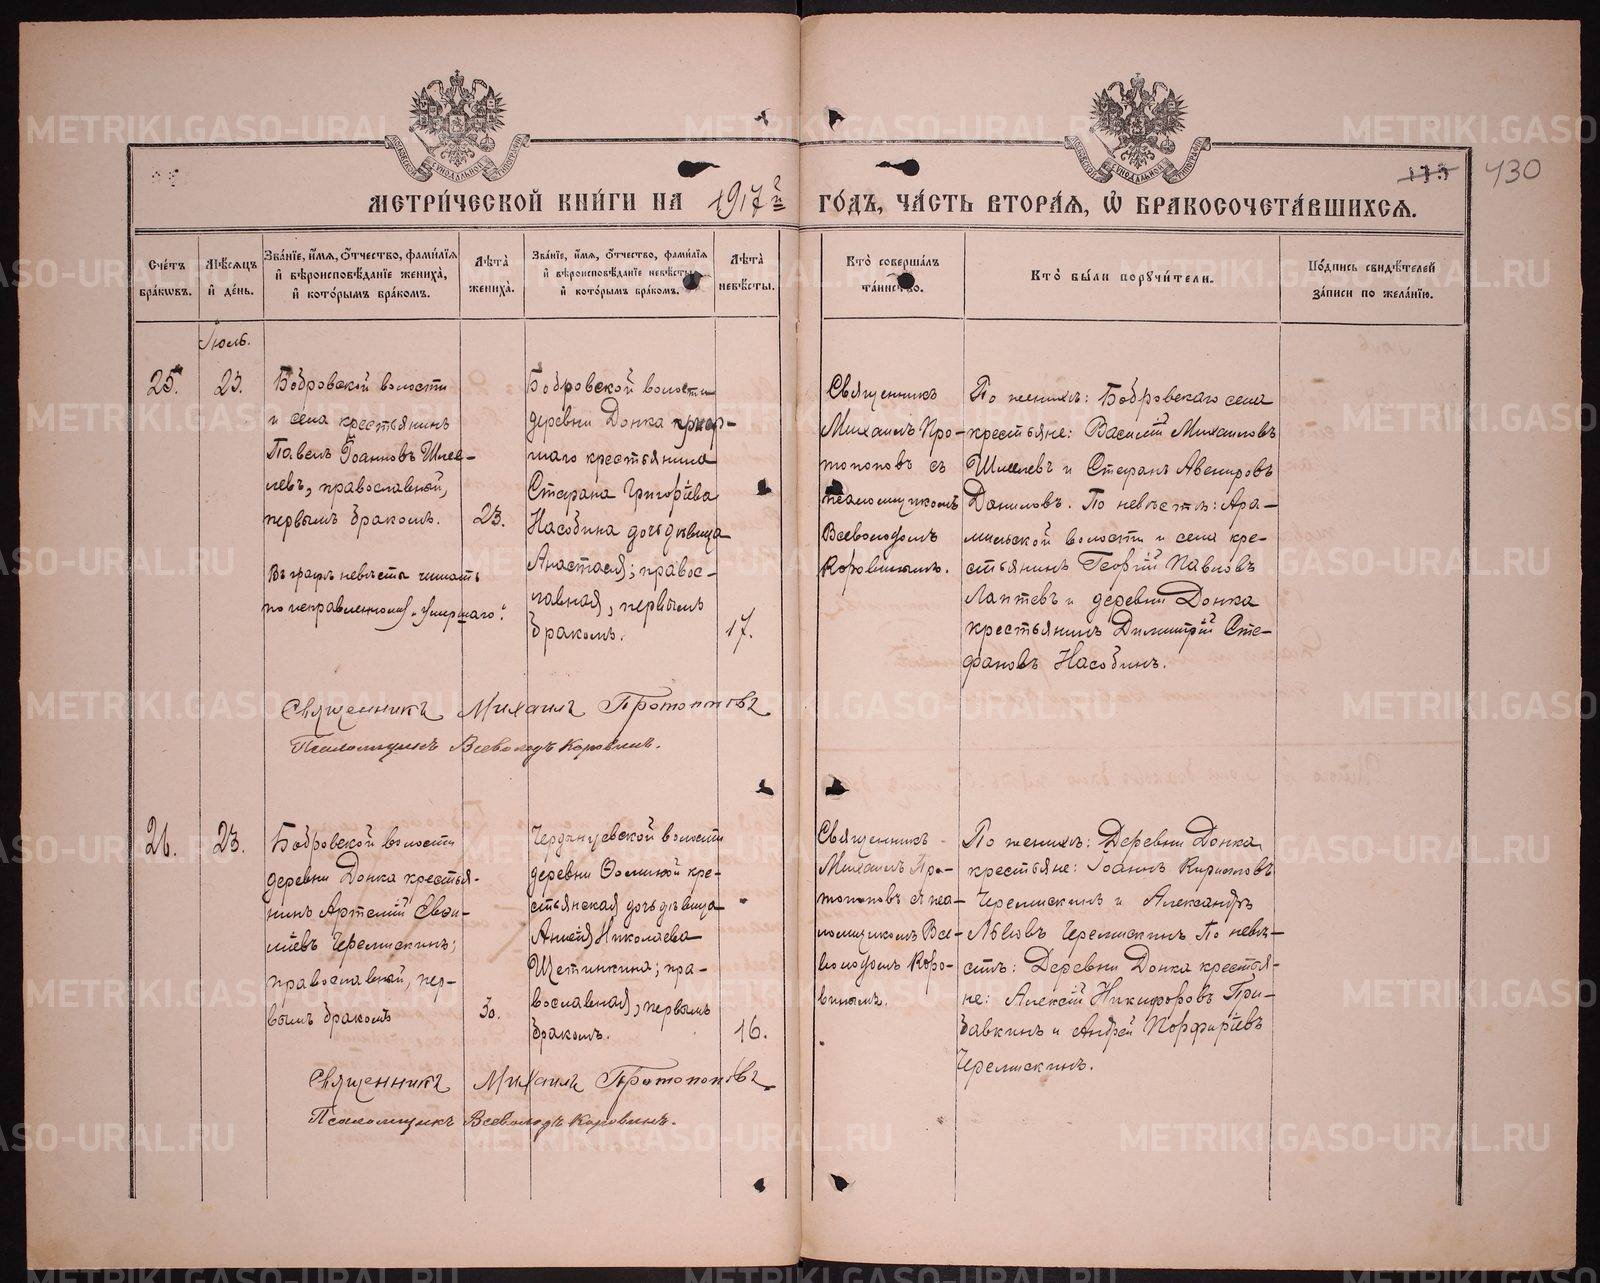 МЕТРИ́ЧЕСКОЙ КНИ́ГИ НА 1917й ГО́ДЪ, ЧА́СТЬ ВТОРА́Я, Ѡ БРАКОСОЧЕТА́ВШИХСЯ.
430
Сче́тъ бра́кѡвъ.
Мѣ́сѧцъ и҆ де́нь.
Зва́нїе, и҆́мѧ, ѻ҆́тчество, фами́лїѧ
и҆ вѣроисповѣ́данїе жениха̀,
и҆ кото́рымъ бра́комъ.
Лѣ́та жениха̀.
Зва́нїе, и҆́мѧ, ѻ҆́тчество, фами́лїѧ
и҆ вѣроисповѣ́данїе невѣ́сты,
и҆ кото́рымъ бра́комъ.
Лѣ́та невѣ́сты.
Кто̀ соверша́лъ та́инство.
Кто̀ бы́ли поручи́тели.
По́дпись свидѣ́телей за́писи по жела́нїю.
Іюль.
25.
23.
Бобровской волости
и села крестьянинъ
Павелъ Іоанновъ Шме-
левъ, православный,
первымъ бракомъ.
23.
Въ графѣ невѣсты читать
по исправленному „умершаго“.
Бобровской волости
деревни Донка умер-
шаго крестьянина
Стефана Григоріева
Насобина дочь дѣвица
Анастасія; правос-
лавная, первымъ
бракомъ.
17.
Священникъ
Михаилъ Про-
топоповъ съ
псаломщикомъ
Всеволодомъ
Коровинымъ.
По женихѣ: Бобровскаго села
крестьяне: Василій Михаиловъ
Шмелевъ и Стефанъ Авенировъ
Даниловъ. По невѣстѣ: Ара-
мильской волости и села кре-
стьянинъ Георгій Павловъ
Лаптевъ и деревни Донка
крестьянинъ Димитрій Сте-
фановъ Насобинъ.
Священникъ Михаилъ Протопоповъ
Псаломщикъ Всеволодъ Коровинъ.
26.
23.
Бобровской волости
деревни Донка крестья-
нинъ Артемій
Черемискинъ;
православный, пер-
вымъ бракомъ
30.
волости
деревни Ѳоминой кре-
стьянская дочь дѣвица
Николаева
Щетинкина; пра-
вославная, первымъ
бракомъ.
16.
Священникъ
Михаилъ Про-
топоповъ съ пса-
ломщикомъ Все-
володомъ Коро-
винымъ.
По женихѣ: Деревни Донка
крестьяне: Іоаннъ Кирилловъ
Черемискинъ и Александръ
Львовъ Черемискинъ. По невѣ-
стѣ: Деревни Донка крестья-
не: Алексій Никифоровъ При-
бавкинъ и Андрей Порфиріевъ
Черемискинъ.
Священникъ Михаилъ Протопоповъ
Псаломщикъ Всеволодъ Коровинъ.
METRIKI.GASO-URAL.RU